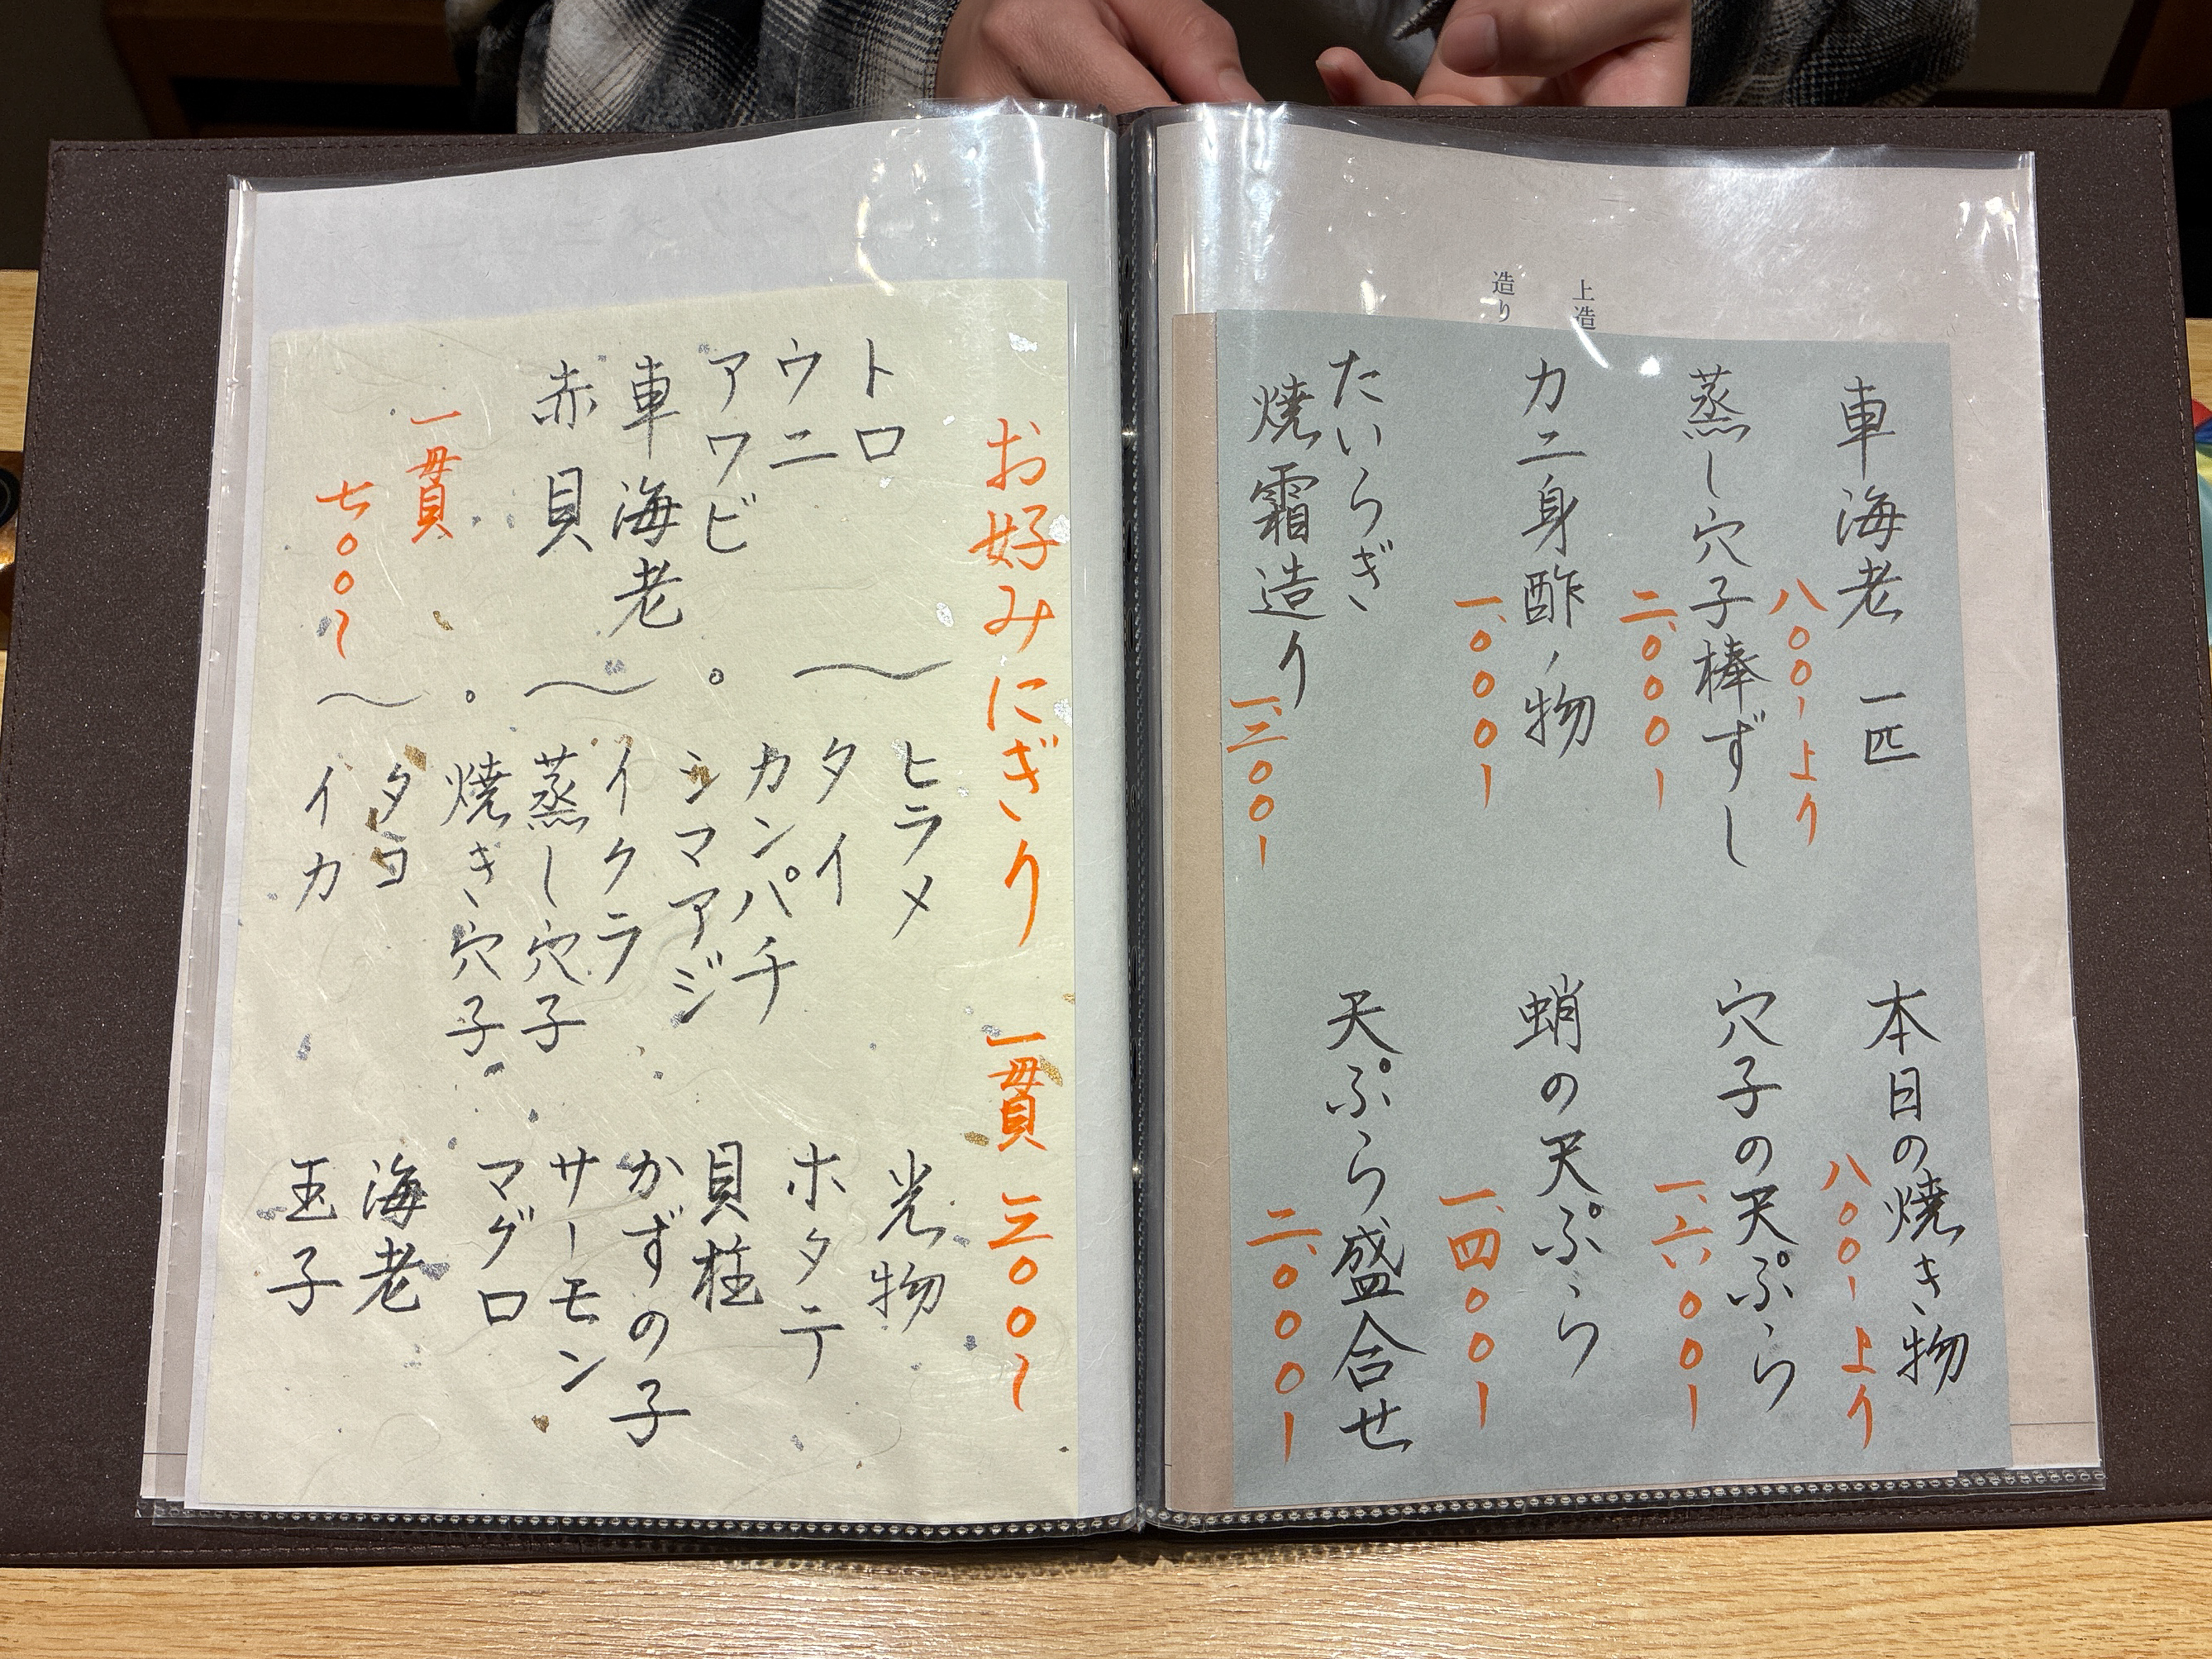 上造
造り
車海老 一匹
八〇〇ーより
蒸し穴子棒ずし
二、〇〇〇ー
カニ身酢ノ物
一、〇〇〇ー
たいらぎ
焼霜造り
一、三〇〇ー
本日の焼き物
八〇〇ーより
穴子の天ぷら
一、六〇〇ー
蛸の天ぷら
一、四〇〇ー
天ぷら盛合せ
二、〇〇〇ー
お好みにぎり 一貫 三〇〇ー
トロ
ウニ
アワビ
車海老
赤貝
一貫
七〇〇ー
〜。〜。〜
ヒラメ
タイ
カンパチ
シマアジ
イクラ
蒸し穴子
焼き穴子
タコ
イカ
光物
ホタテ
貝柱
かずの子
サーモン
マグロ
海老
玉子